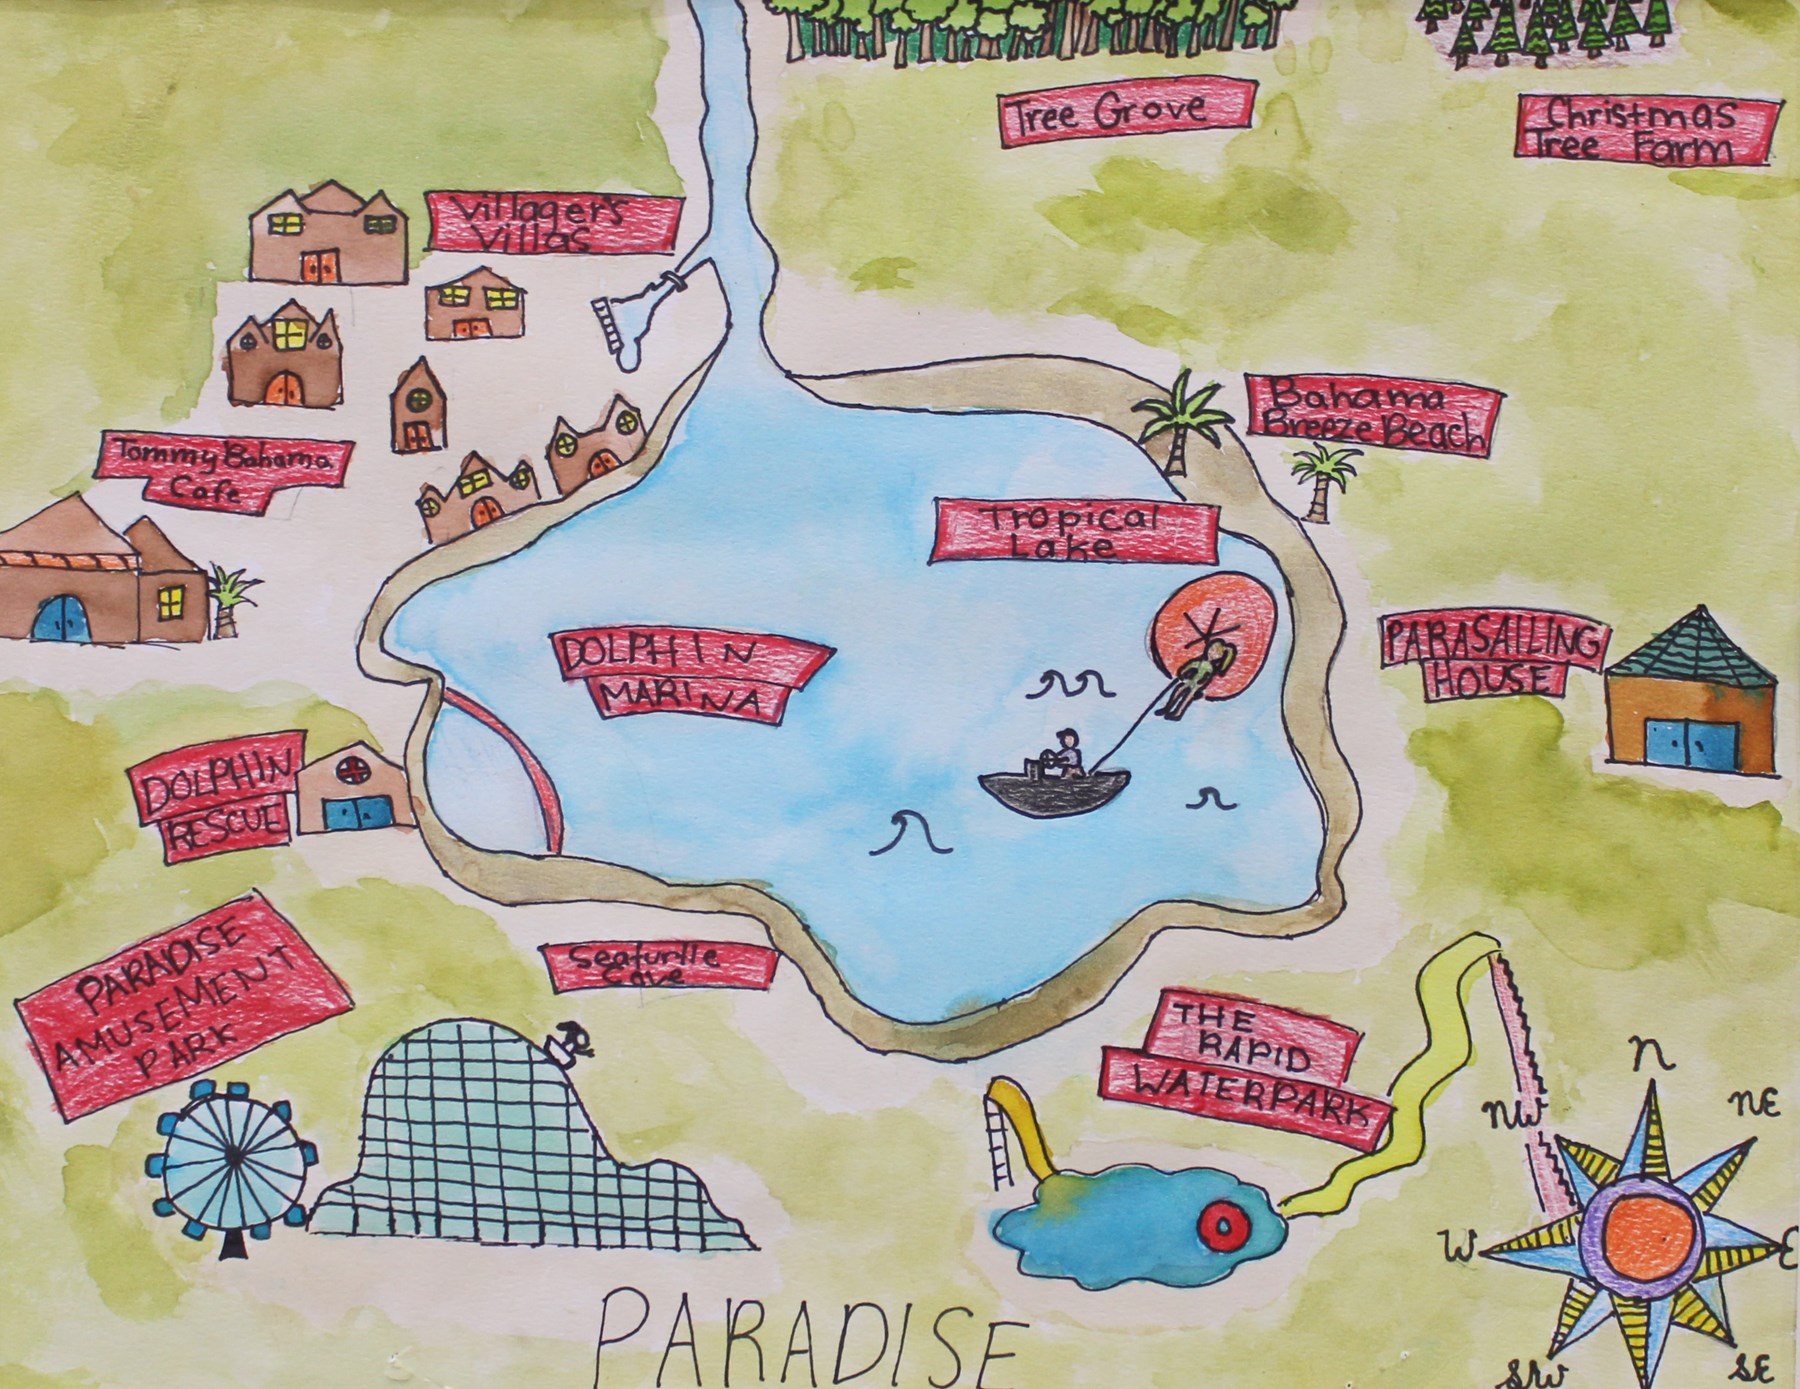 Tree Grove
Christmas
Tree Farm
Villager's
Villas
Bahama
Breeze Beach
Tommy Bahama
Cafe
Tropical
Lake
DOLPHIN
MARINA
PARASAILING
HOUSE
DOLPHIN
RESCUE
PARADISE
AMUSEMENT
PARK
Seaturtle
Cove
THE
RAPID
WATERPARK
N
NW
NE
W
E
SW
SE
PARADISE